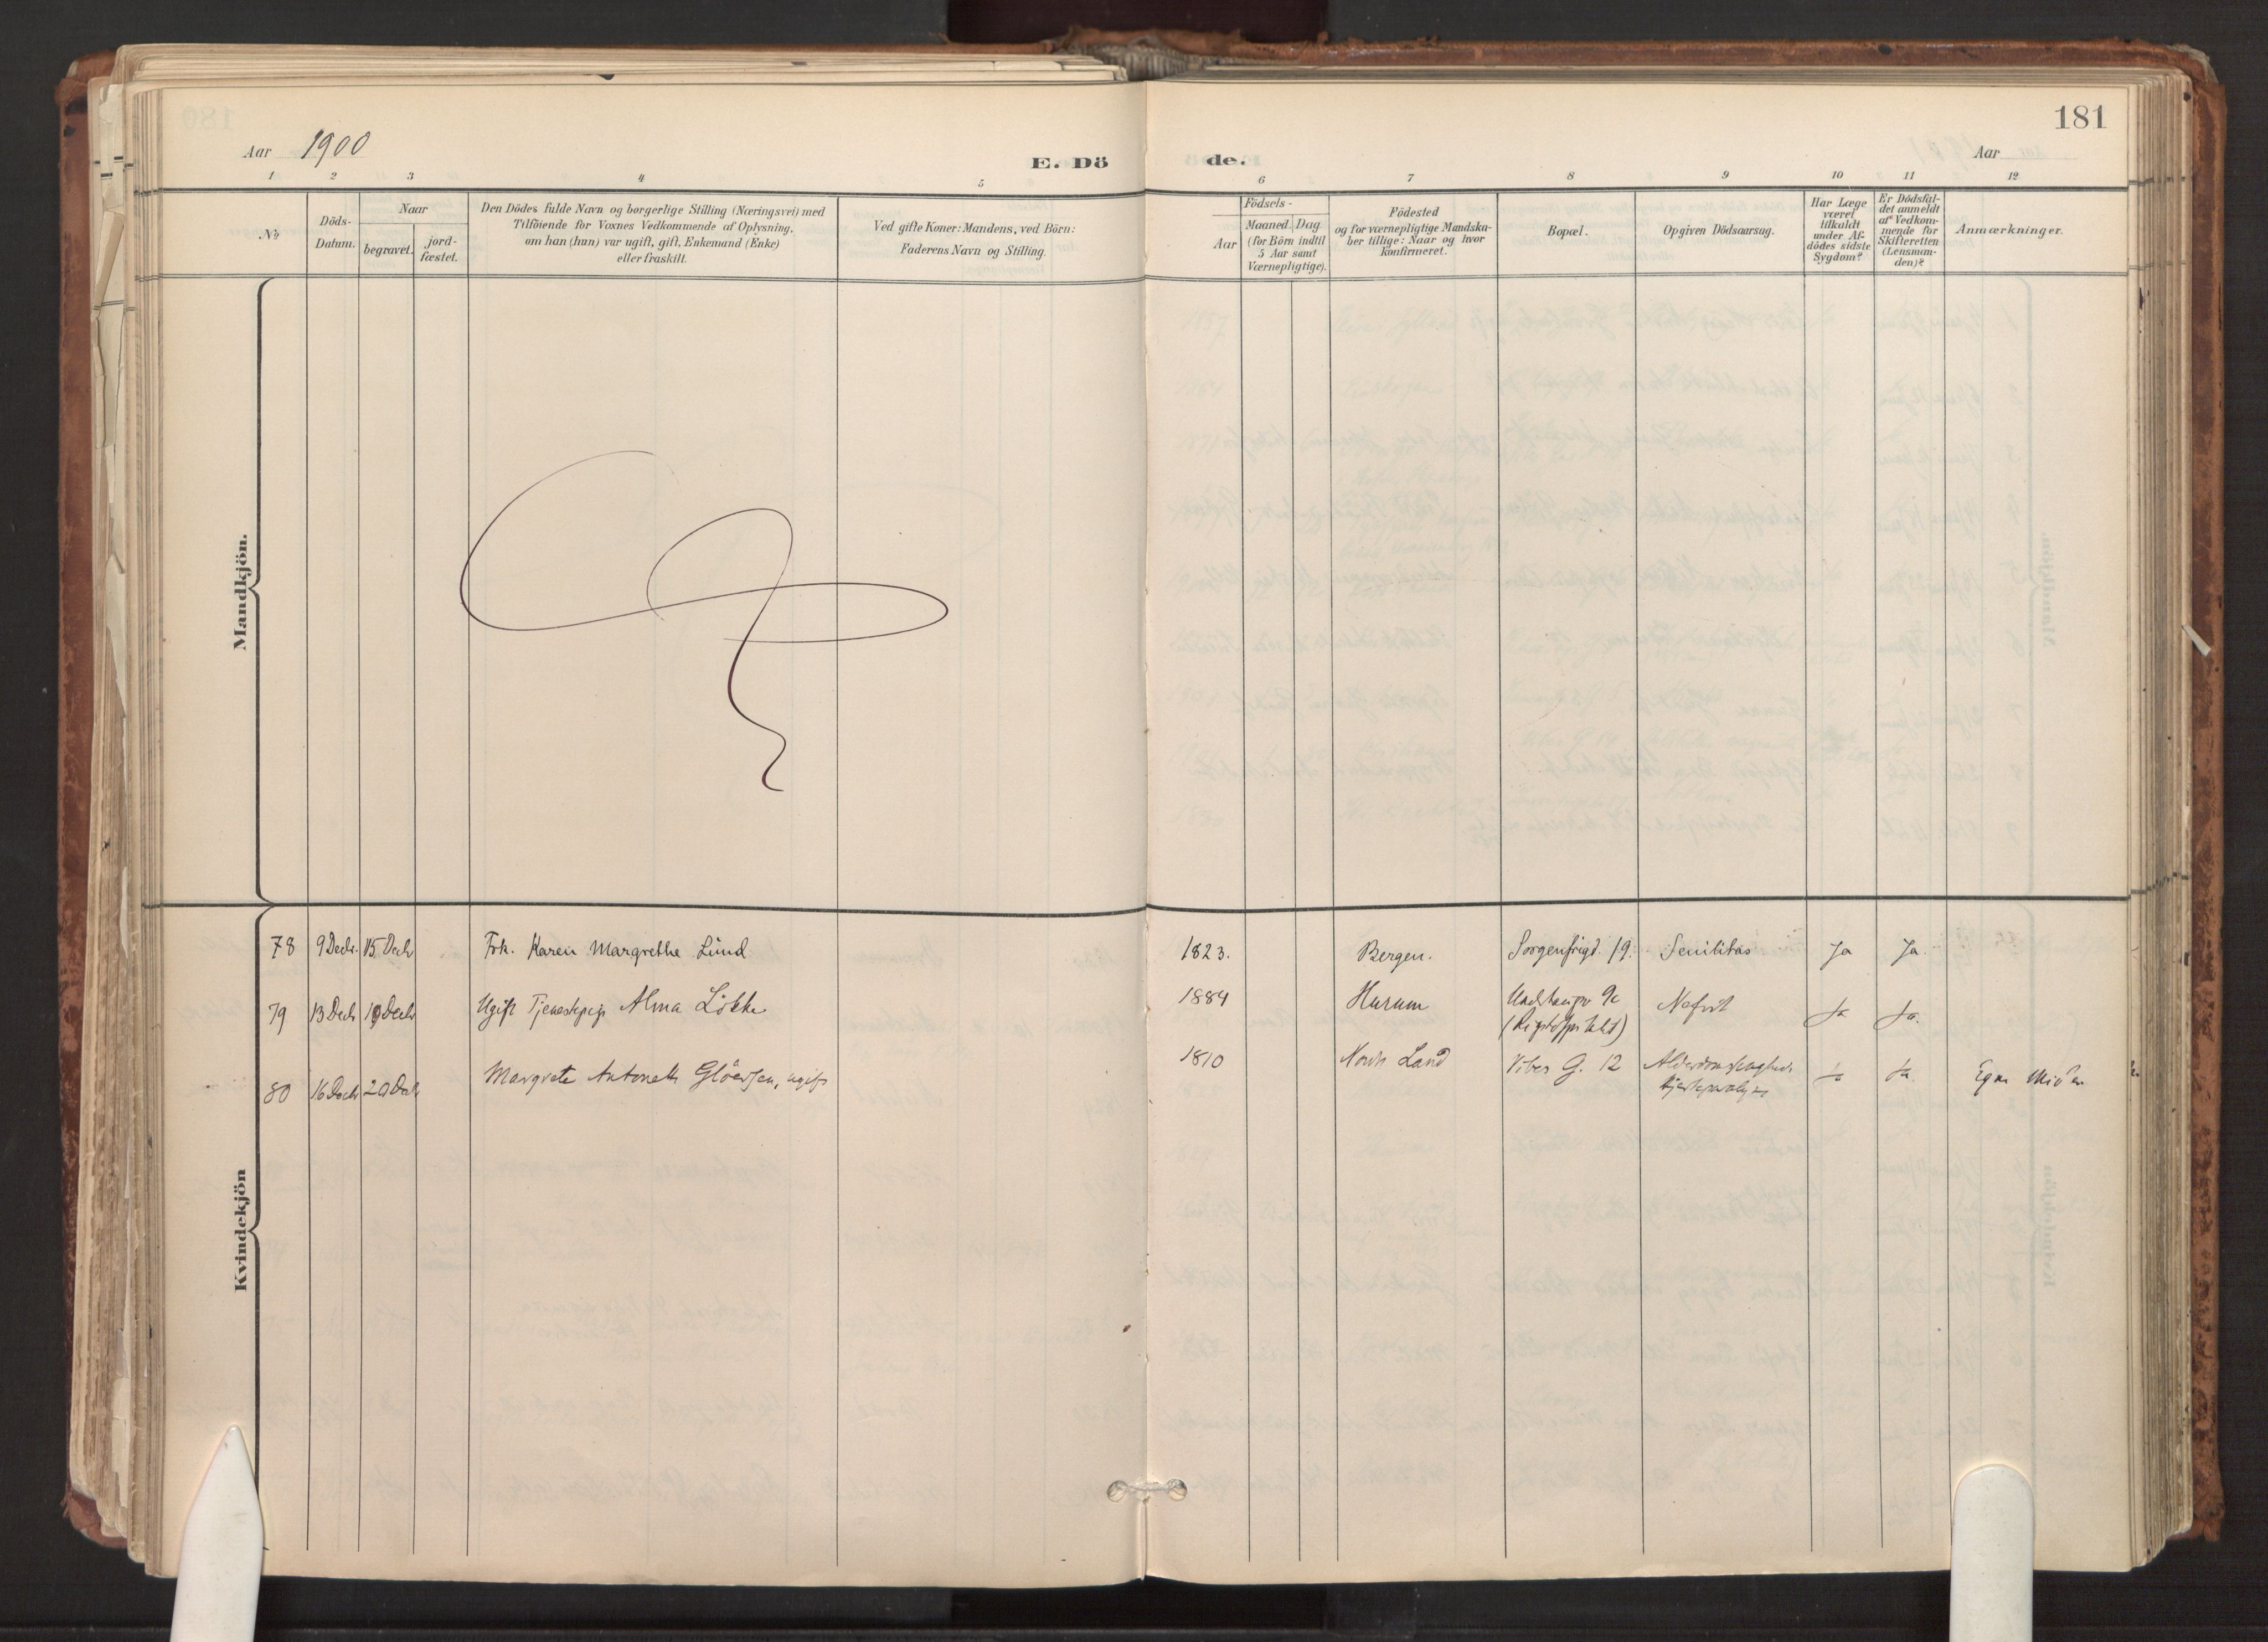 181
Aar 1900
E. Dö
de.
Aar
1 2 3 4 5 6 7 8 9 10 11 12
No
Döds-
Datum.
Naar
begravet.
jord-
fæstet.
Den Dödes fulde Navn og borgerlige Stilling (Næringsvei) med
Tilföiende for Voxnes Vedkommende af Oplysning,
om han (hun) var ugift, gift, Enkemand (Enke)
eller fraskilt.
Ved gifte Koner: Mandens, ved Börn:
Faderens Navn og Stilling.
Födsels-
Aar
Maaned. Dag
(for Börn indtil
5 Aar samt
Værnepligtige).
Födested
og for værnepligtige Mandska-
ber tillige: Naar og hvor
konfirmeret.
Bopæl.
Opgiven Dödsaarsag.
Har Læge
været
tilkaldt
under Af-
dödes sidste
Sygdom?
Er Dödsfal-
det anmeldt
af Vedkom-
mende for
Skifteretten
(Lensman-
den)?
Anmærkninger.
Mandkjön.
Kvindekjön
78 9 Decbr. 15 Decbr Frk. Karen Margrethe Lund 1823. Bergen. Sorgenfrigd. 19. Senilitas Ja Ja
79 13 Decbr 19 Decbr Ugift Tjenestepige Alma Lökke 1884 Hurum 9c Nefrit Ja Ja.
80 16 Decbr 20 Decbr Margrete Antonette Glöersen, ugift 1810 Nordr Land Vibes G. 12 Ja Ja